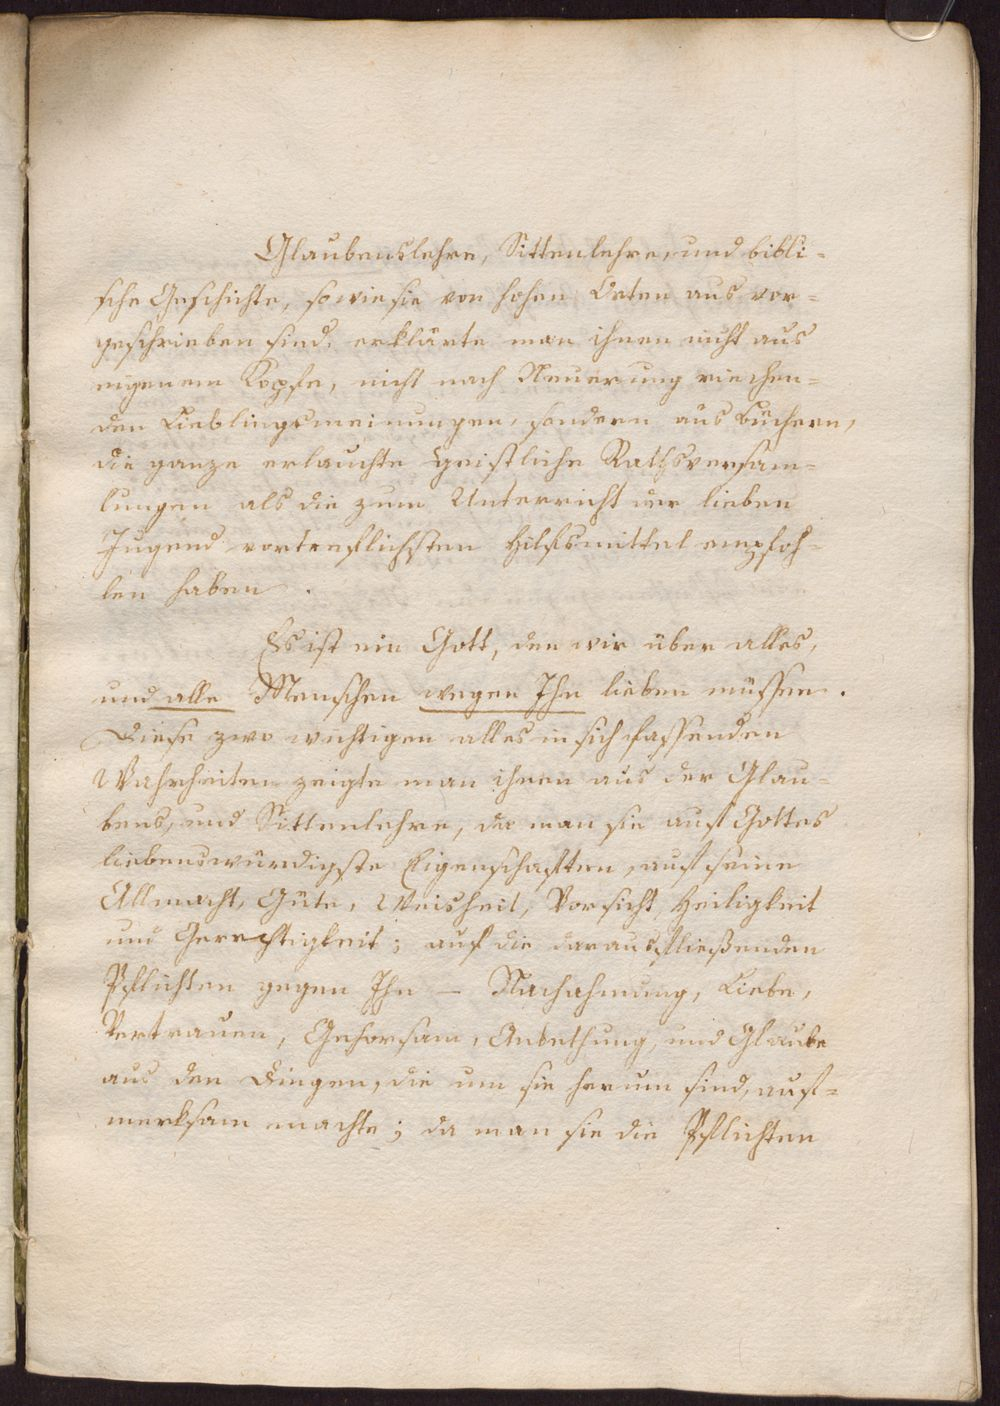 Glaubenslehre, Sittenlehre, und bibli-
sche Geschichte, so wie sie von hohen Orten aus vor-
geschrieben sind, erklärte man ihnen nicht aus
eigenem Kopfe, nicht nach Neuerung riechen-
den Lieblingsmeinungen, sondern aus Büchern,
die ganze erlauchte geistliche Rathsversam-
lungen als die zum Unterricht der lieben
Jugend vortreflichsten Hilfsmittel empfoh-
len haben.
Es ist ein Gott, den wir über alles,
und alle Menschen wegen Ihn lieben müssen.
Diese zwo wichtigen alles in sich fassenden
Wahrheiten zeigte man ihnen aus der Glau-
bens, und Sittenlehre, da man sie auf Gottes
liebenswürdigste Eigenschaften, auf seine
Allmacht, Güte, Weisheit, Vorsicht, Heiligkeit
und Gerechtigkeit; auf die darausfließenden
Pflichten gegen Ihn — Nachahmung, Liebe,
Vertrauen, Gehorsam, Anbethung, und Glaube
aus den Dingen, die um sie herum sind, auf-
merksam machte; da man sie die Pflichten